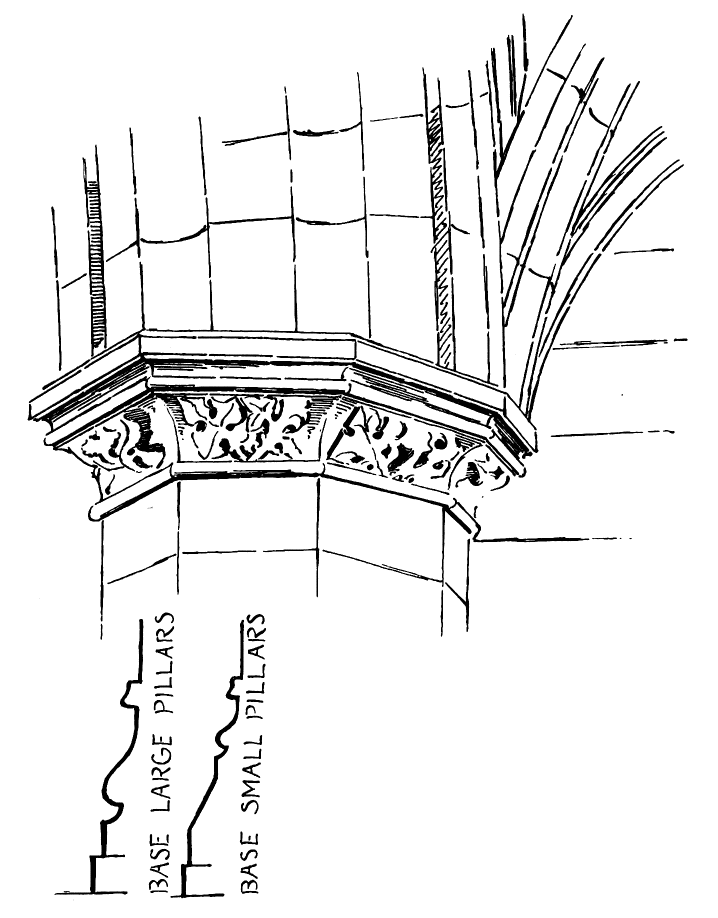 BASE LARGE PILLARS
BASE SMALL PILLARS